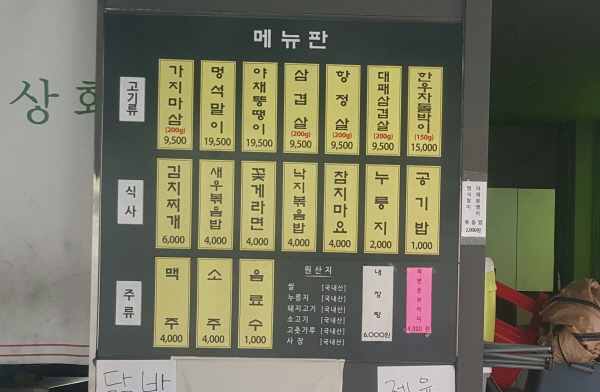 상호
메뉴판
고기류
가지마삼
(200g)
9,500
멍석말이
19,500
야채뚱땡이
19,500
삼겹살
(200g)
9,500
항정살
(200g)
9,500
대패삼겹살
(200g)
9,500
한우차돌박이
(150g)
15,000
식사
김치찌개
6,000
새우볶음밥
4,000
꽃게라면
4,000
낙지볶음밥
4,000
참치마요
4,000
누룽지
2,000
공기밥
1,000
야채뚱땡이
멍석말이
볶음밥
2,000원
주류
맥주
4,000
소주
4,000
음료수
1,000
원산지
쌀 [국내산]
누룽지 [국내산]
돼지고기 [국내산]
소고기 [국내산]
고춧가루 [국내산]
사장 [국내산]
내장탕
6,000원
4,000 원